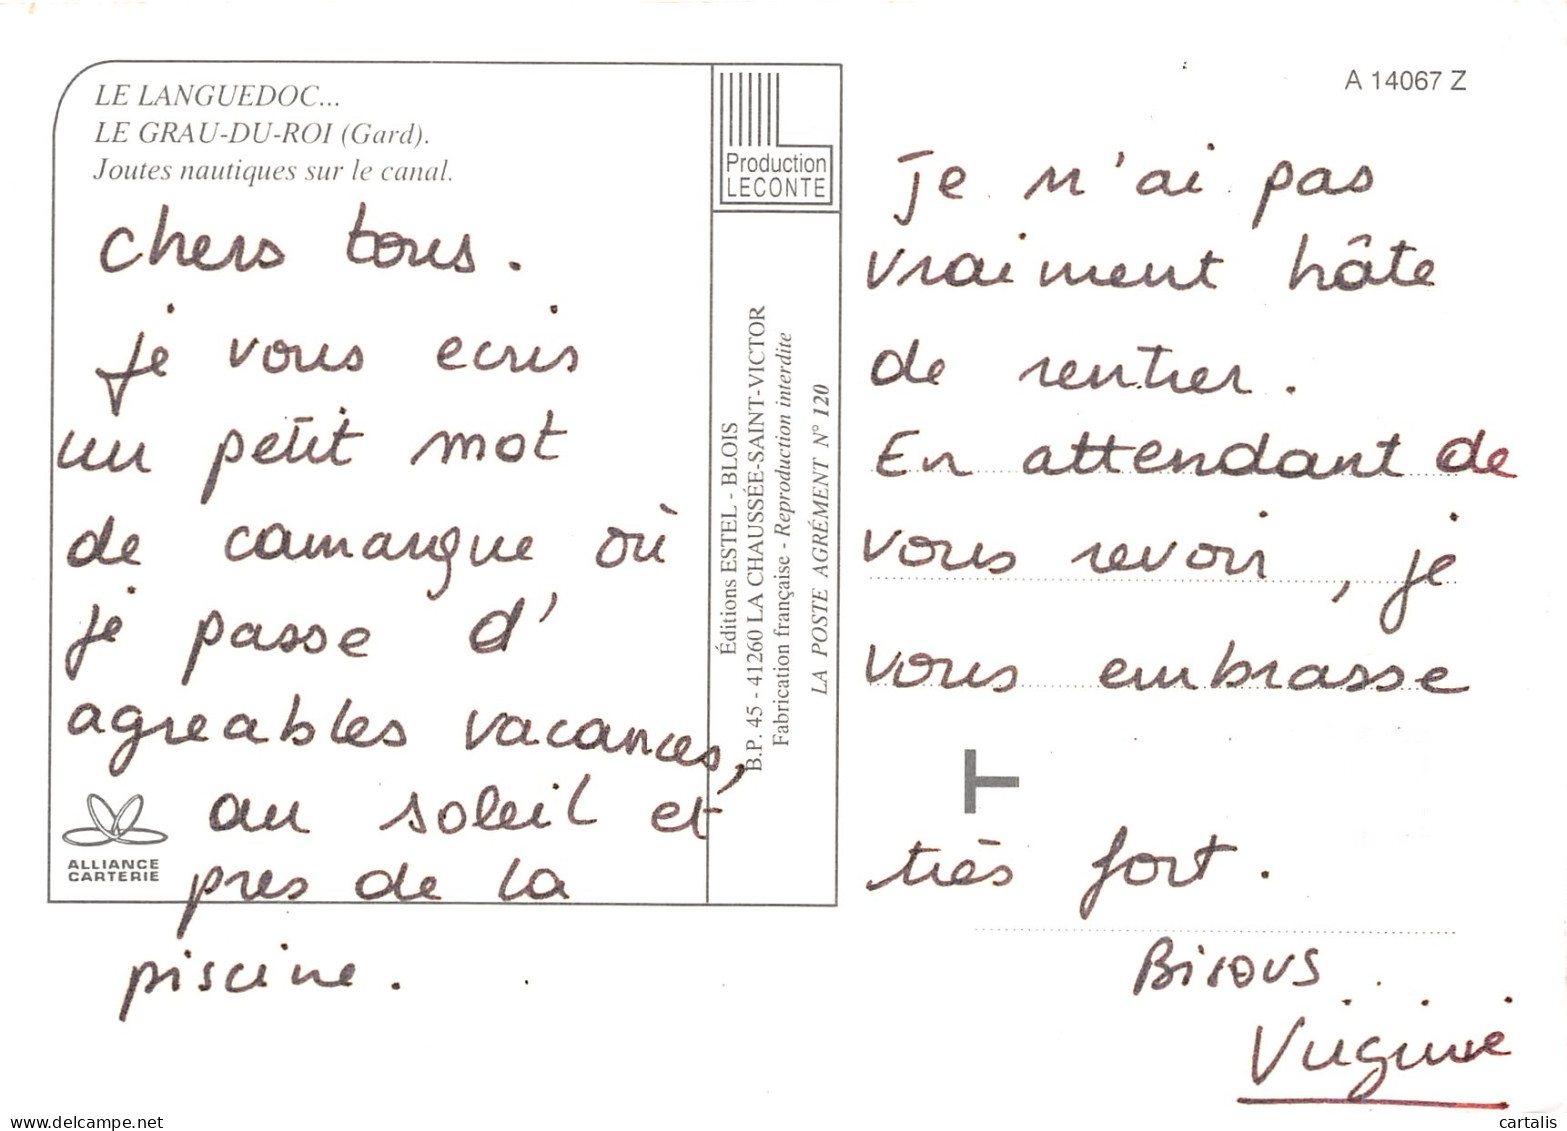 LE LANGUEDOC...
LE GRAU-DU-ROI (Gard).
Joutes nautiques sur le canal.
chers tous.
je vous ecris
un petit mot
de camargue où
je passe d'
agreables vacances,
au soleil et
pres de la
piscine.
ALLIANCE
CARTERIE
Production
LECONTE
Éditions ESTEL - BLOIS
B.P. 45 - 41260 LA CHAUSSÉE-SAINT-VICTOR
Fabrication française - Reproduction interdite
LA POSTE AGRÉMENT N° 120
A 14067 Z
Je n'ai pas
vraiment hâte
de rentrer.
En attendant de
vous revoir, je
vous embrasse
T
très fort.
Bisous
Virginie
www.delcampe.net
cartalis